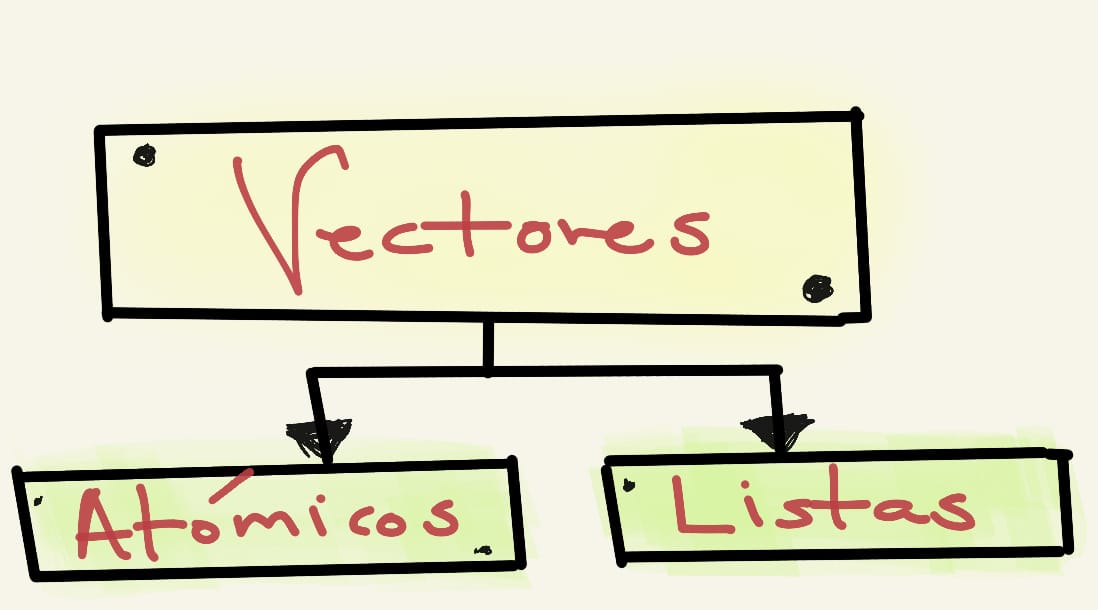 Vectores
Atómicos
Listas